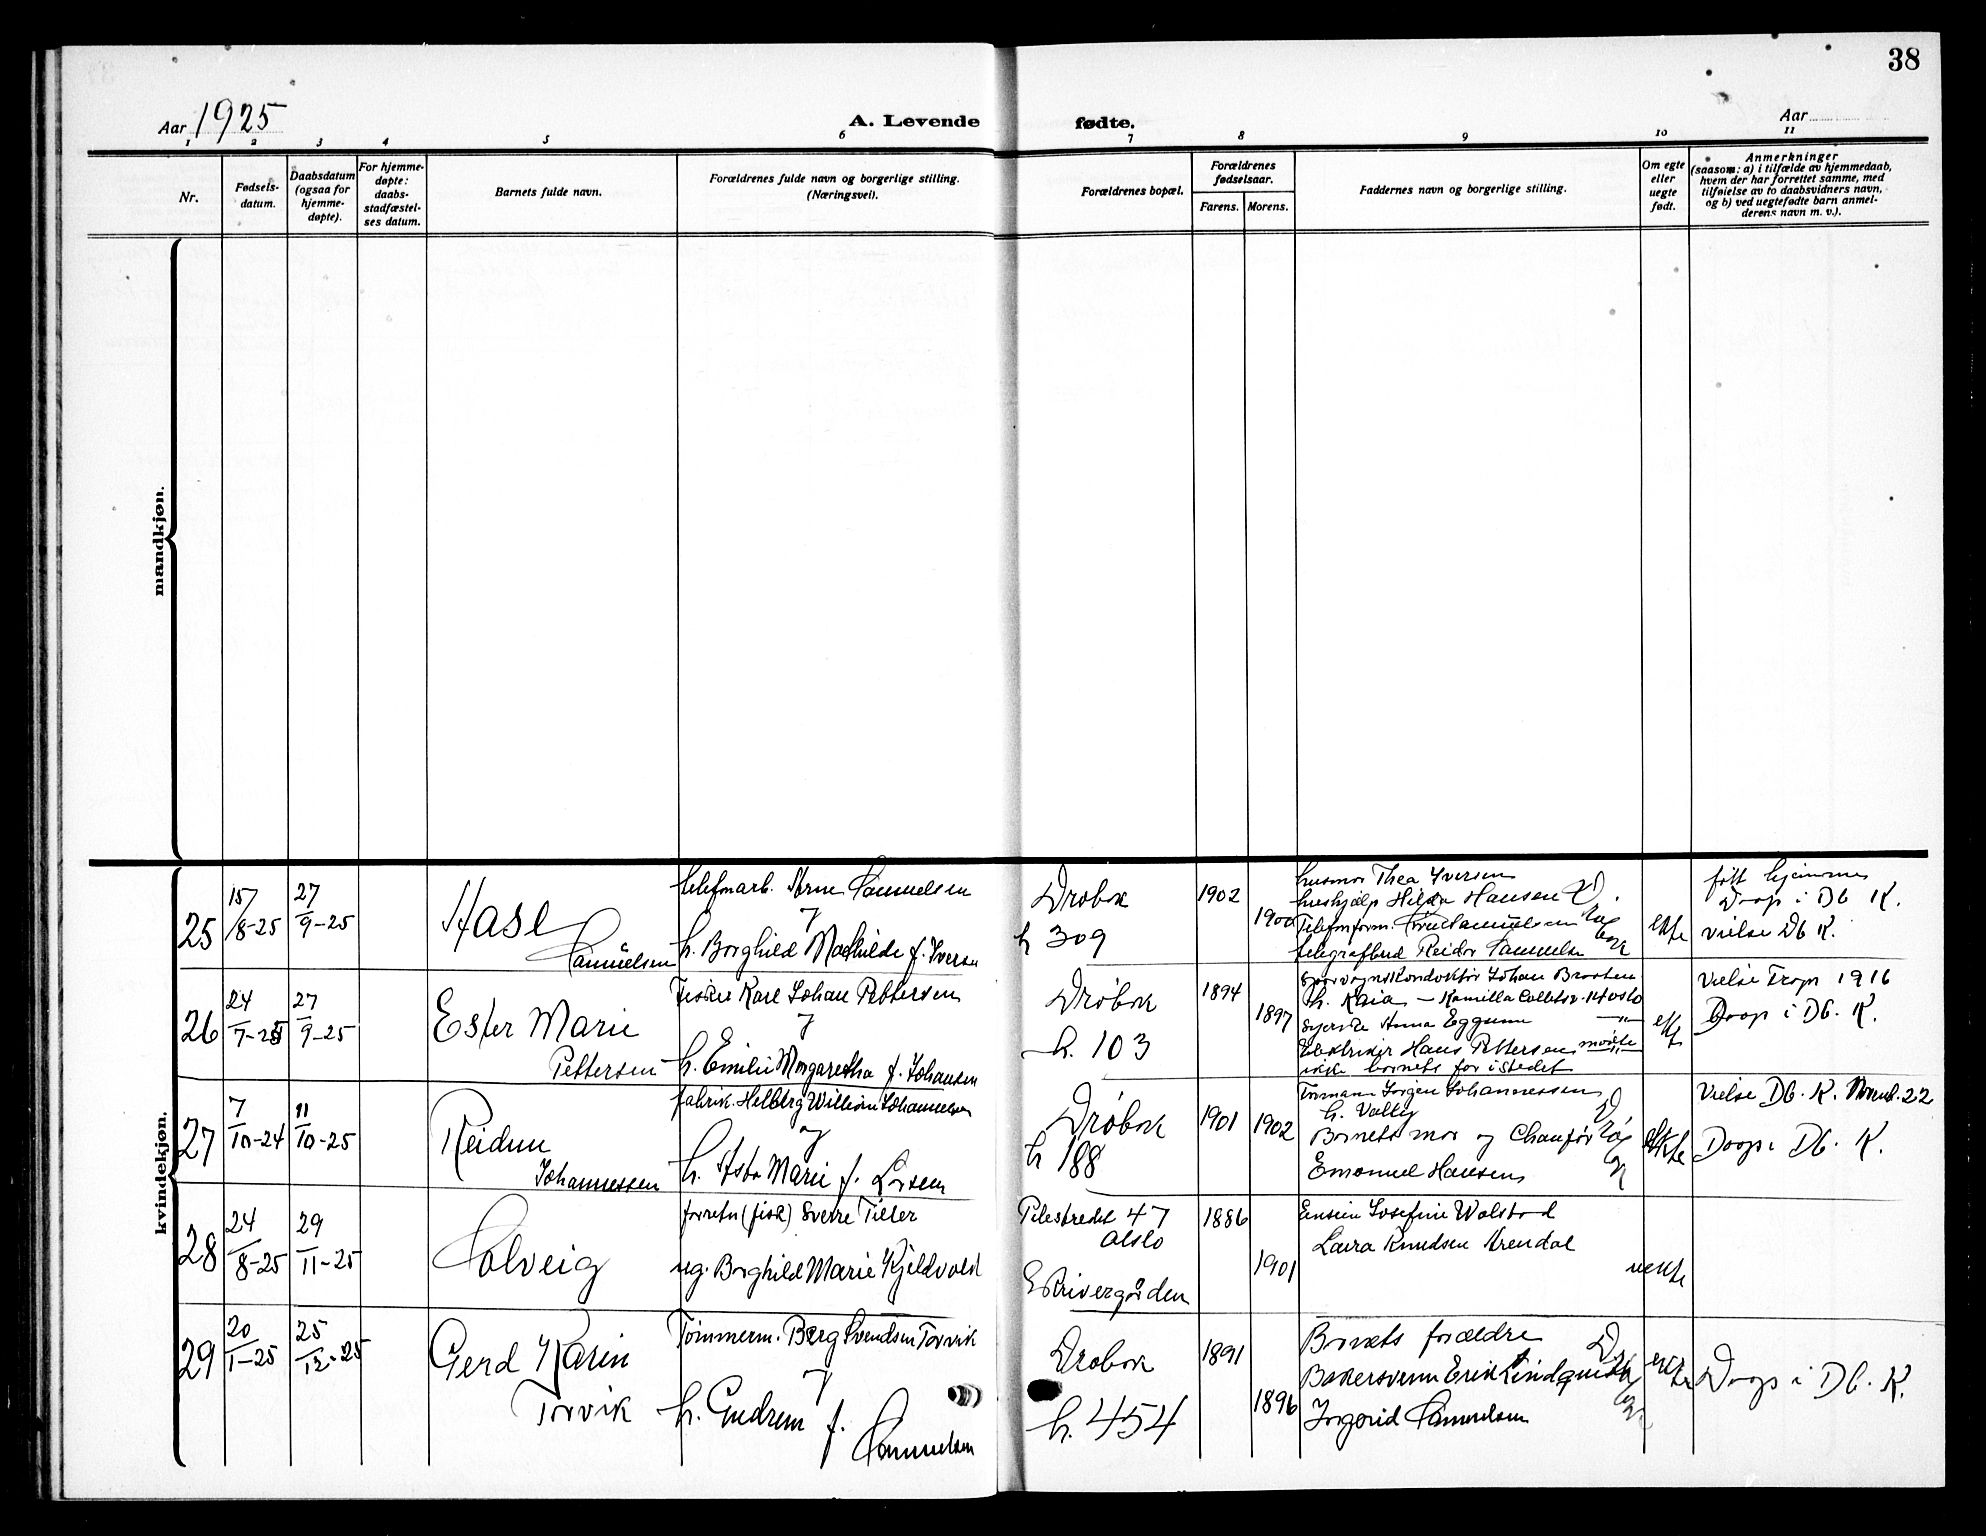 38
Aar 1925
A. Levende fødte.
Aar
1 2 3 4 5 6 7 8 9 10 11
Nr.
Fødsels-
datum.
Daabsdatum
(ogsaa for
hjemme-
døpte).
For hjemme-
døpte:
daabs-
stadfæstel-
ses datum.
Barnets fulde navn.
Forældrenes fulde navn og borgerlige stilling.
(Næringsvei).
Forældrenes bopæl.
Forældrenes
fødselsaar.
Farens. Morens.
Faddernes navn og borgerlige stilling.
Om egte
eller
uegte
født.
Anmerkninger
(saasom: a) i tilfælde av hjemmedaab,
hvem der har forrettet samme, med
tilføielse av to daabsvidners navn,
og b) ved uegtefødte barn anmel-
derens navn m. v.).
mandkjøn.
kvindekjøn.
25
15/8-25
27/9-25
Aase
Samuelsen
telefonarb. Arne Samuelsen
og
h. Borghild Mathilde f. Iversen
Drøbak
h 309
1902
1900
husmor Thea Iversen
hushjelp Hilda Hansen
telegrafbud Reidar Samuelsen
ekte
født hjemme
Doop i Db K.
vielse Db K.
26
24/7-25
27/9-25
Ester Marie
Pettersen
Fisker Karl Johan Pettersen
og
h. Emilie Margaretha f. Johansen
Drøbak
h. 103
1894
1897
Sporvognskonduktør Johan Braaten
h. Kaia - Kamilla Colletsv. 14 Oslo
Syerske Anna Eggum —"—
Elektriker Hans Pettersen møtte
ikke barnets far istedet
ekte
Vielse Frogn 1916
Doop i Db. K.
27
7/10-24
11/10-25
Reidun
Johannessen
fabrik. Helberg William Johannessen
og
h. Asta Marie f. Larsen
Drøbak
h 188
1901
1902
Formann Jørgen Johannessen
h. Valbg
Barnets mor og Chauffør
Emanuel Hansen
ekte
Vielse Db. K. Novemb. 22
Doop i Db. K.
28
24/8-25
29/11-25
Solveig
forretn (fisk) Sverre Tiller
ug. Borghild Marie Kjeldvold
Pilestredet 47
Oslo
Skrivergården
1886
1901
Enslin Josefine Walstad
Laura Knudsen Arendal
uekte
29
20/1-25
25/12-25
Gerd Karin
Torvik
Tømmerm. Berg Svendsen Torvik
og
h. Gudrun f.
Samuelsen
Drøbak
h. 454
1891
1896
Barnets forældre
Bakersvenn Erik Lindquist
Ingrid Samuelsen
ekte
Doop i Db. K.